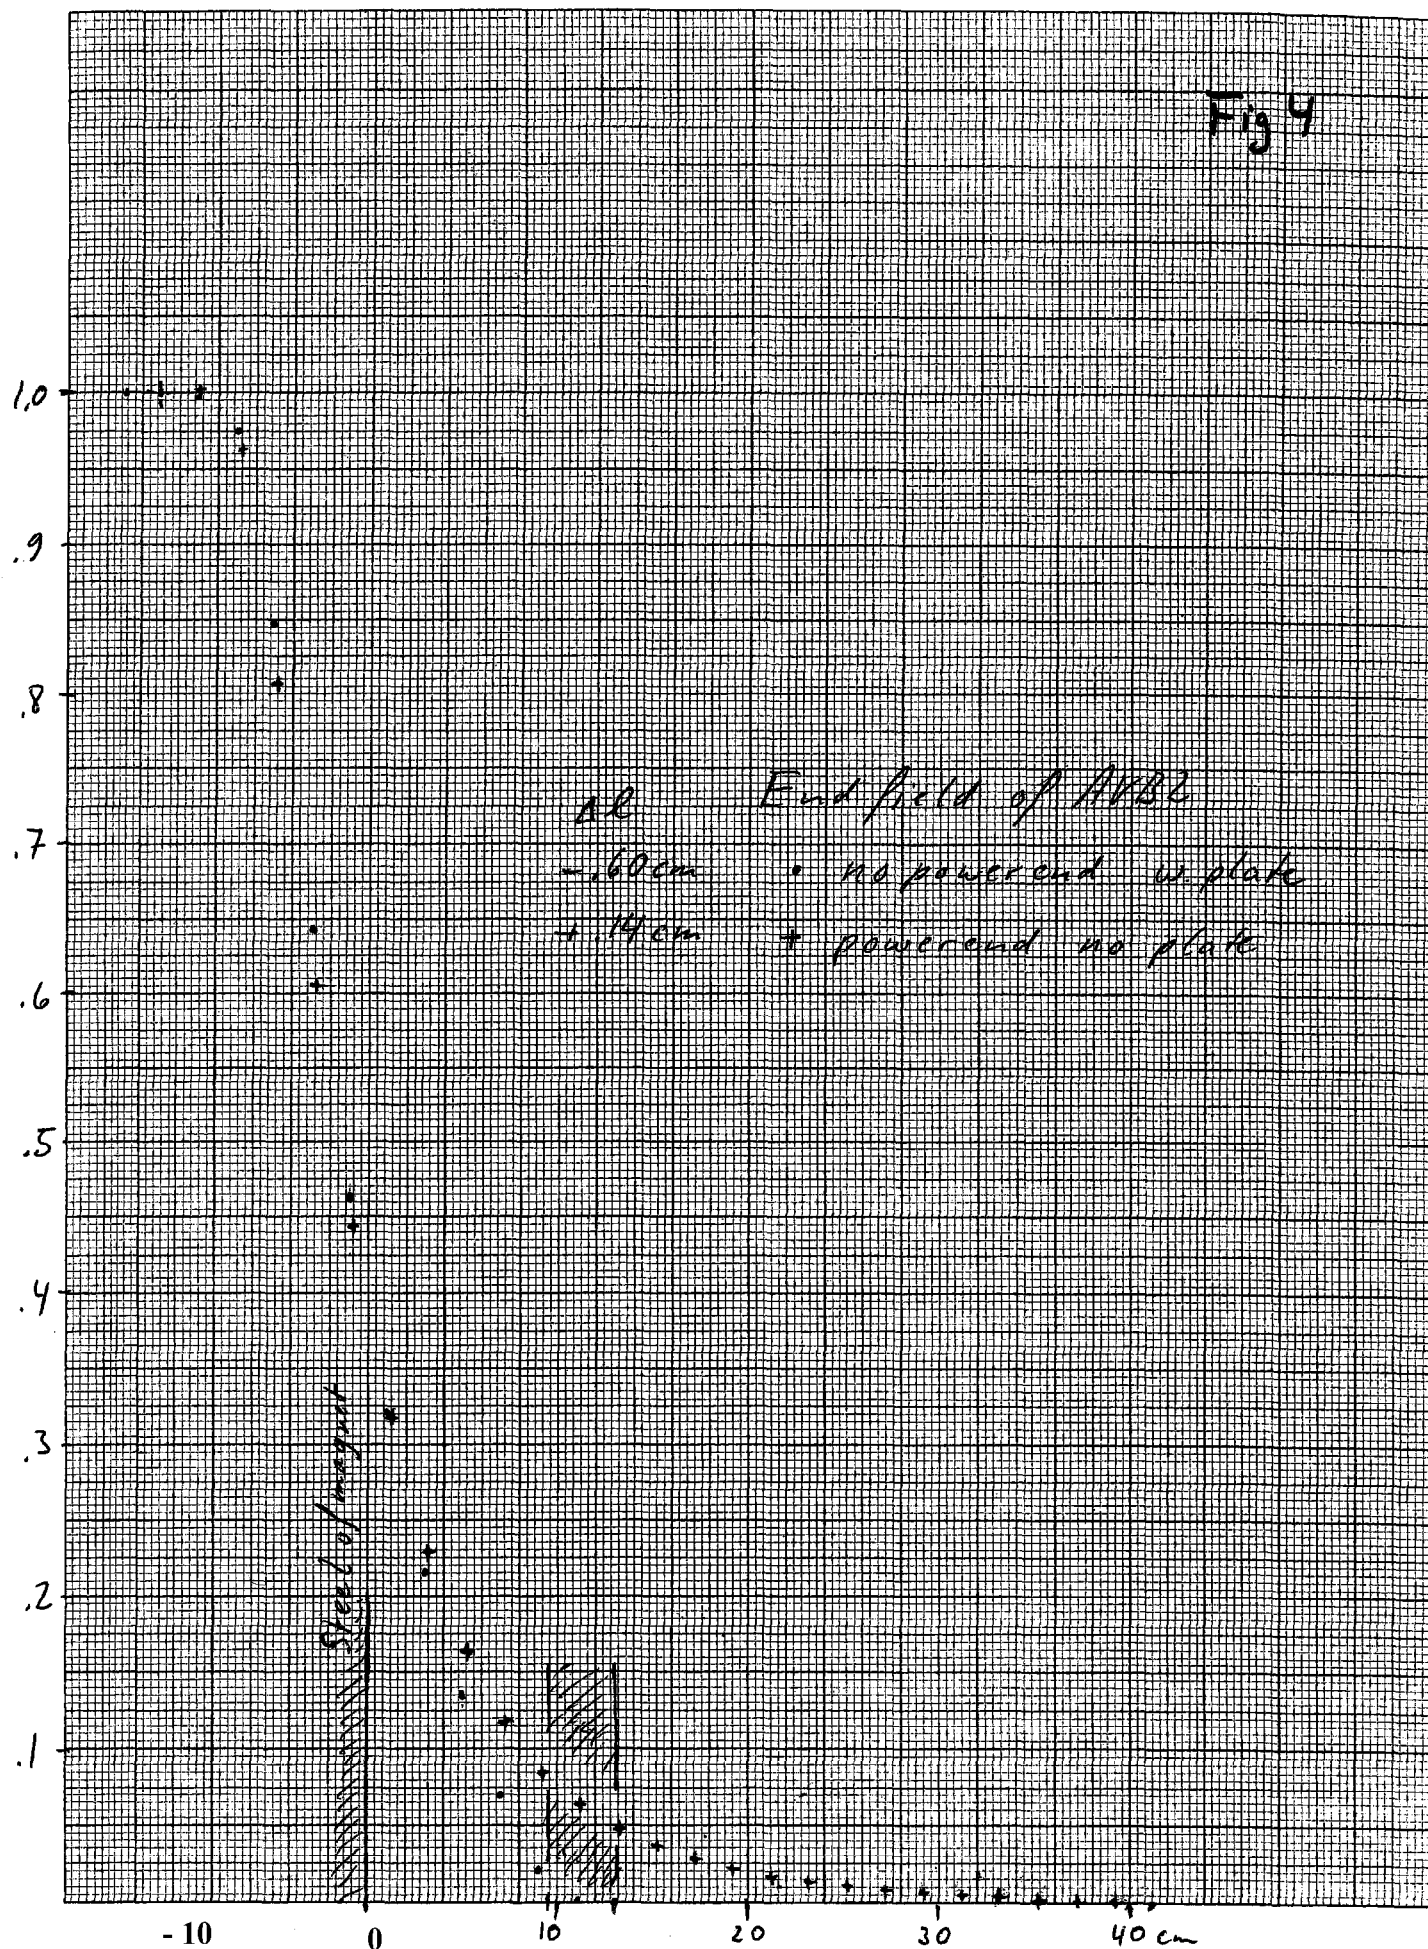 Fig 4
1,0
.9
.8
Δl End field of AVB2
.7
-.60cm • no powerend w. plate
+.14cm + powerend no plate
.6
.5
.4
Steel of magnet
.3
.2
.1
-10 0 10 20 30 40 cm